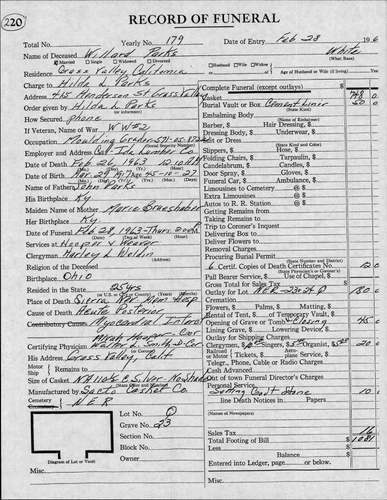 220
RECORD OF FUNERAL
Total No. Yearly No. 179 Date of Entry Feb 28 196
Name of Deceased Willard Parks White
Married Single Widowed Divorced (What Race)
Residence Grass Valley, California Husband Wife Widow of
Age of Husband or Wife (if living)
Charge to Hilda L Parks
Address 715 Henderson St Grass Valley
Order given by Hilda L Parks
(or informant)
How Secured phone
If Veteran, War of WW#2
Occupation Moulding Grader
Employer and Address Cal Ida Lumber Co
Date of Death Feb 26, 1963 12:10 AM
Date of Birth Mar 29
Name of Father John Parks
His Birthplace Ky
Maiden Name of Mother Marie
Her Birthplace Ky
Date of Funeral Feb 28, 1963-Thurs 2:00 PM
Services at Hooper & Weaver
Clergyman Harley L
Religion of the Deceased
Birthplace Ohio
Resided in the State
Place of Death Sierra Nev Mem Hosp
Cause of Death Acute Posterior
Contributory Cause Myocardial
Certifying Physician Walter K. Smith D. Cor
His Address Grass Valley, Calif
Motor Ship Remains to
Size of Casket
Manufactured by Sacto Casket Co
Cemetery Crematory N E R
Lot No. Q
Grave No. 23
Section No.
Block No.
Owner
Diagram of Lot or Vault
Misc.
Complete Funeral (except outlays) $
Burial Vault or Box Cement Liner 50
(State Kind)
Embalming Body
(Name of Embalmer)
Barber, $ Hair Dressing, $
Dressing Body, $ Underwear, $
Suit or Dress
(State Kind and Color)
Slippers, $ Hose, $
Folding Chairs, $ Tarpaulin, $
Candelabrum, $ Candles, $
Door Spray, $ Gloves, $
Funeral Car, $ Ambulance, $
Limousines to Cemetery @ $
Extra Limousines @ $
Autos to R. R. Station @ $
Getting Remains from
Taking Remains to
Trip to Coroner's Inquest
Delivering Box to
Deliver Flowers to
Removal Charges
Procuring Burial Permit
(State Number and District)
6 Cert. Copies of Death Certificates No. 12 0
(State Physician's or Coroner's)
Pall Bearer Service Use of Chapel, $
Gross Total for Sales Tax $
Outlay for Lot NER-23-2-Q 180 0
Cremation
Flowers, $ Palms, $ Matting, $
Rental of Tent, $ of Temporary Vault, $
Opening of Grave or Tomb & Closing 45 0
Lining Grave, $ Lowering Device, $
Outlay for Shipping Charges
Clergyman, $ Singers, $ Organist, $ 20
Railroad or Motor Tickets, $ Aeroplane Service, $
Telegr., Phone, Cable or Radio Charges
Cash Advanced
Out of town Funeral Director's Charges
Personal Service
Setting Gov't Stone
line Death Notices in Papers
(Names of Newspapers)
Sales Tax 16
Total Footing of Bill $ 1081
Less $
Balance $
Entered into Ledger, page or below.
Misc.